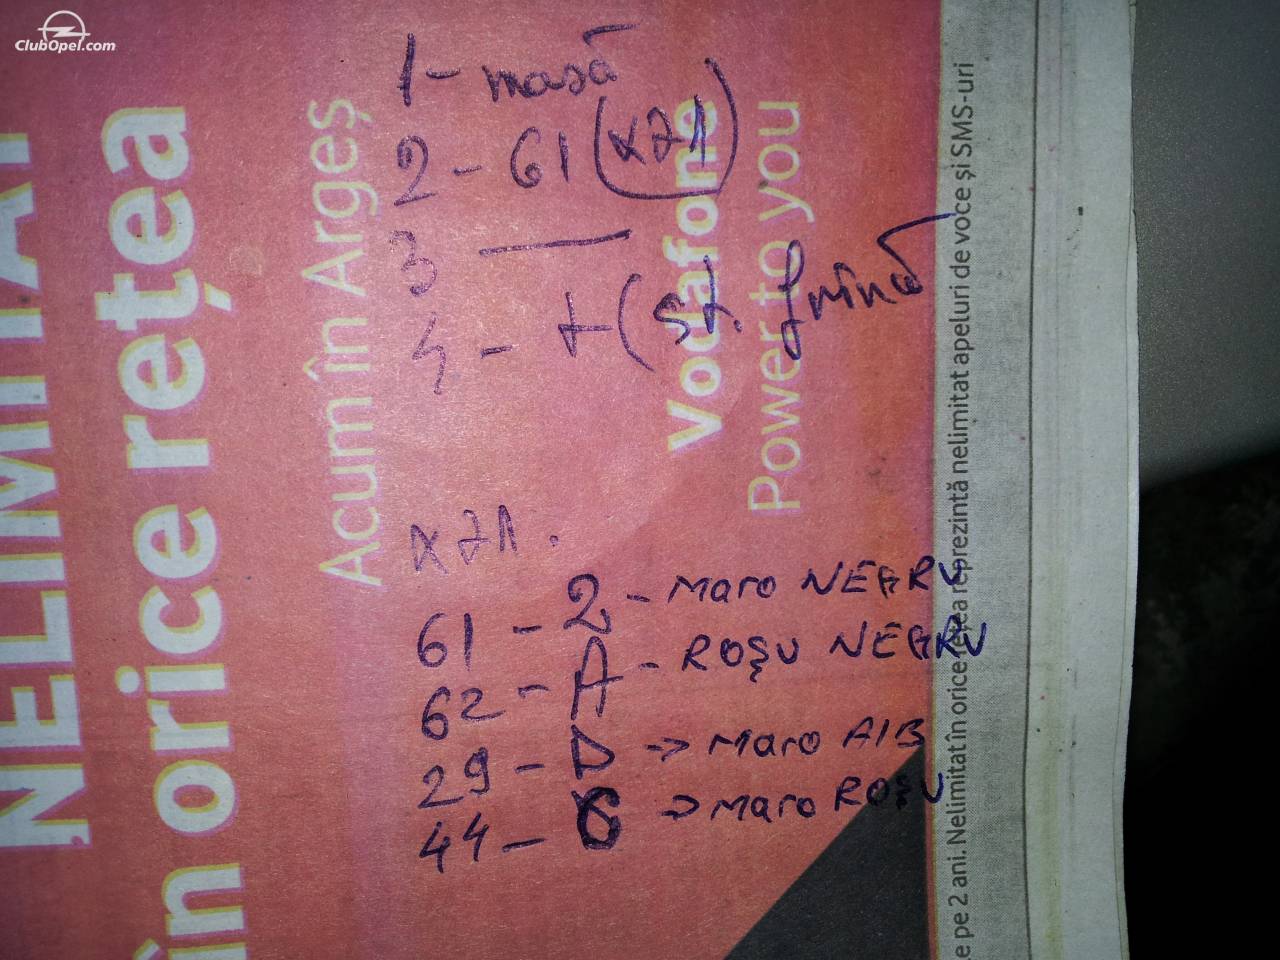 ClubOpel.com
1 - masă
2 - 61 (X71)
3 —
4 - + (St. frînă
X71.
61 - 2 - Maro NEGRU
62 - A - ROȘU NEGRU
29 - D -> Maro AlB
44 - C -> Maro ROȘU
NELIMITAT
în orice rețea
Acum în Argeș
Vodafone
Power to you
e pe 2 ani. Nelimitat în orice rețea reprezintă nelimitat apeluri de voce și SMS-uri